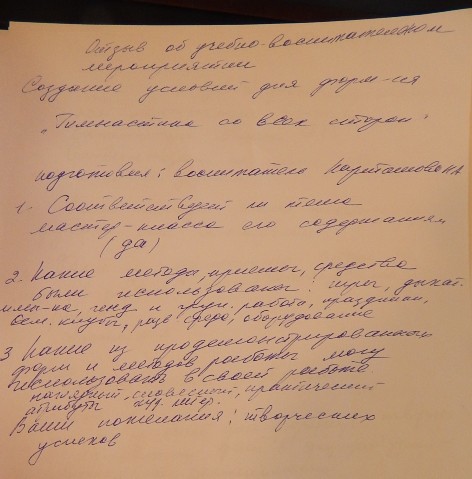 Отзыв об учебно-воспитательном
мероприятии
Создание условий для форм-ия
"Гимнастика со всех сторон"
подготовил: воспитатель
1. Соответствует ли тема
мастер-класса его содержанию
(да)
2. Какие методы, приемы, средства
были использованы: игры, дыхат.
и груп. работа, праздники,
клубы, среда, оборудование
3 Какие из продемонстрированных
форм и методов работы могу
использовать в своей работе
наглядный, словесный, практический
атрибуты
Ваши пожелания: творческих
успехов